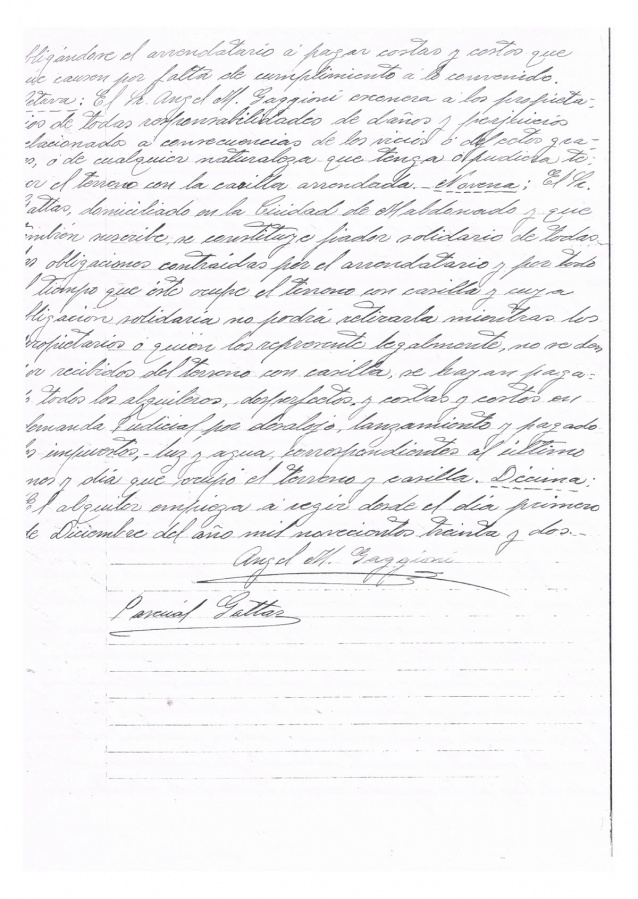 bligándose el arrendatario á pagar costas y costos que
ue causen por falta de cumplimiento á lo convenido.
ctava: El Sr. Angel M. Gaggioni exonera á los propieta-
ios de todas responsabilidades de daños y perjuicios
elacionado a consecuencias de los vicios ó defectos gra-
s, ó de cualquier naturaleza que tenga ó pudiera te-
er el terreno con la casilla arrendada.- Novena: El Sr.
attas, domiciliado en la Ciudad de Maldonado y que
mbién suscribe, se constituye fiador solidario de todas
s obligaciones contraídas por el arrendatario y, por todo
l tiempo que éste ocupe el terreno con casilla y cuya
bligacion solidaria no podrá retirarla mientras los
ropietarios ó quien los represente legalmente, no se den
or recibidos del terreno con casilla, se hayan paga-
o todos los alquileres, desperfectos, y costas y costos en
emanda Judicial por desalojo, lanzamiento y pagado
s impuestos,- luz y agua, correspondientes al último
mes y día que ocupó el terreno y casilla. Décima:
El alquiler empieza a regir desde el día primero
de Diciembre del año mil novecientos treinta y dos.-
Angel M. Gaggioni
Pascual Gattas